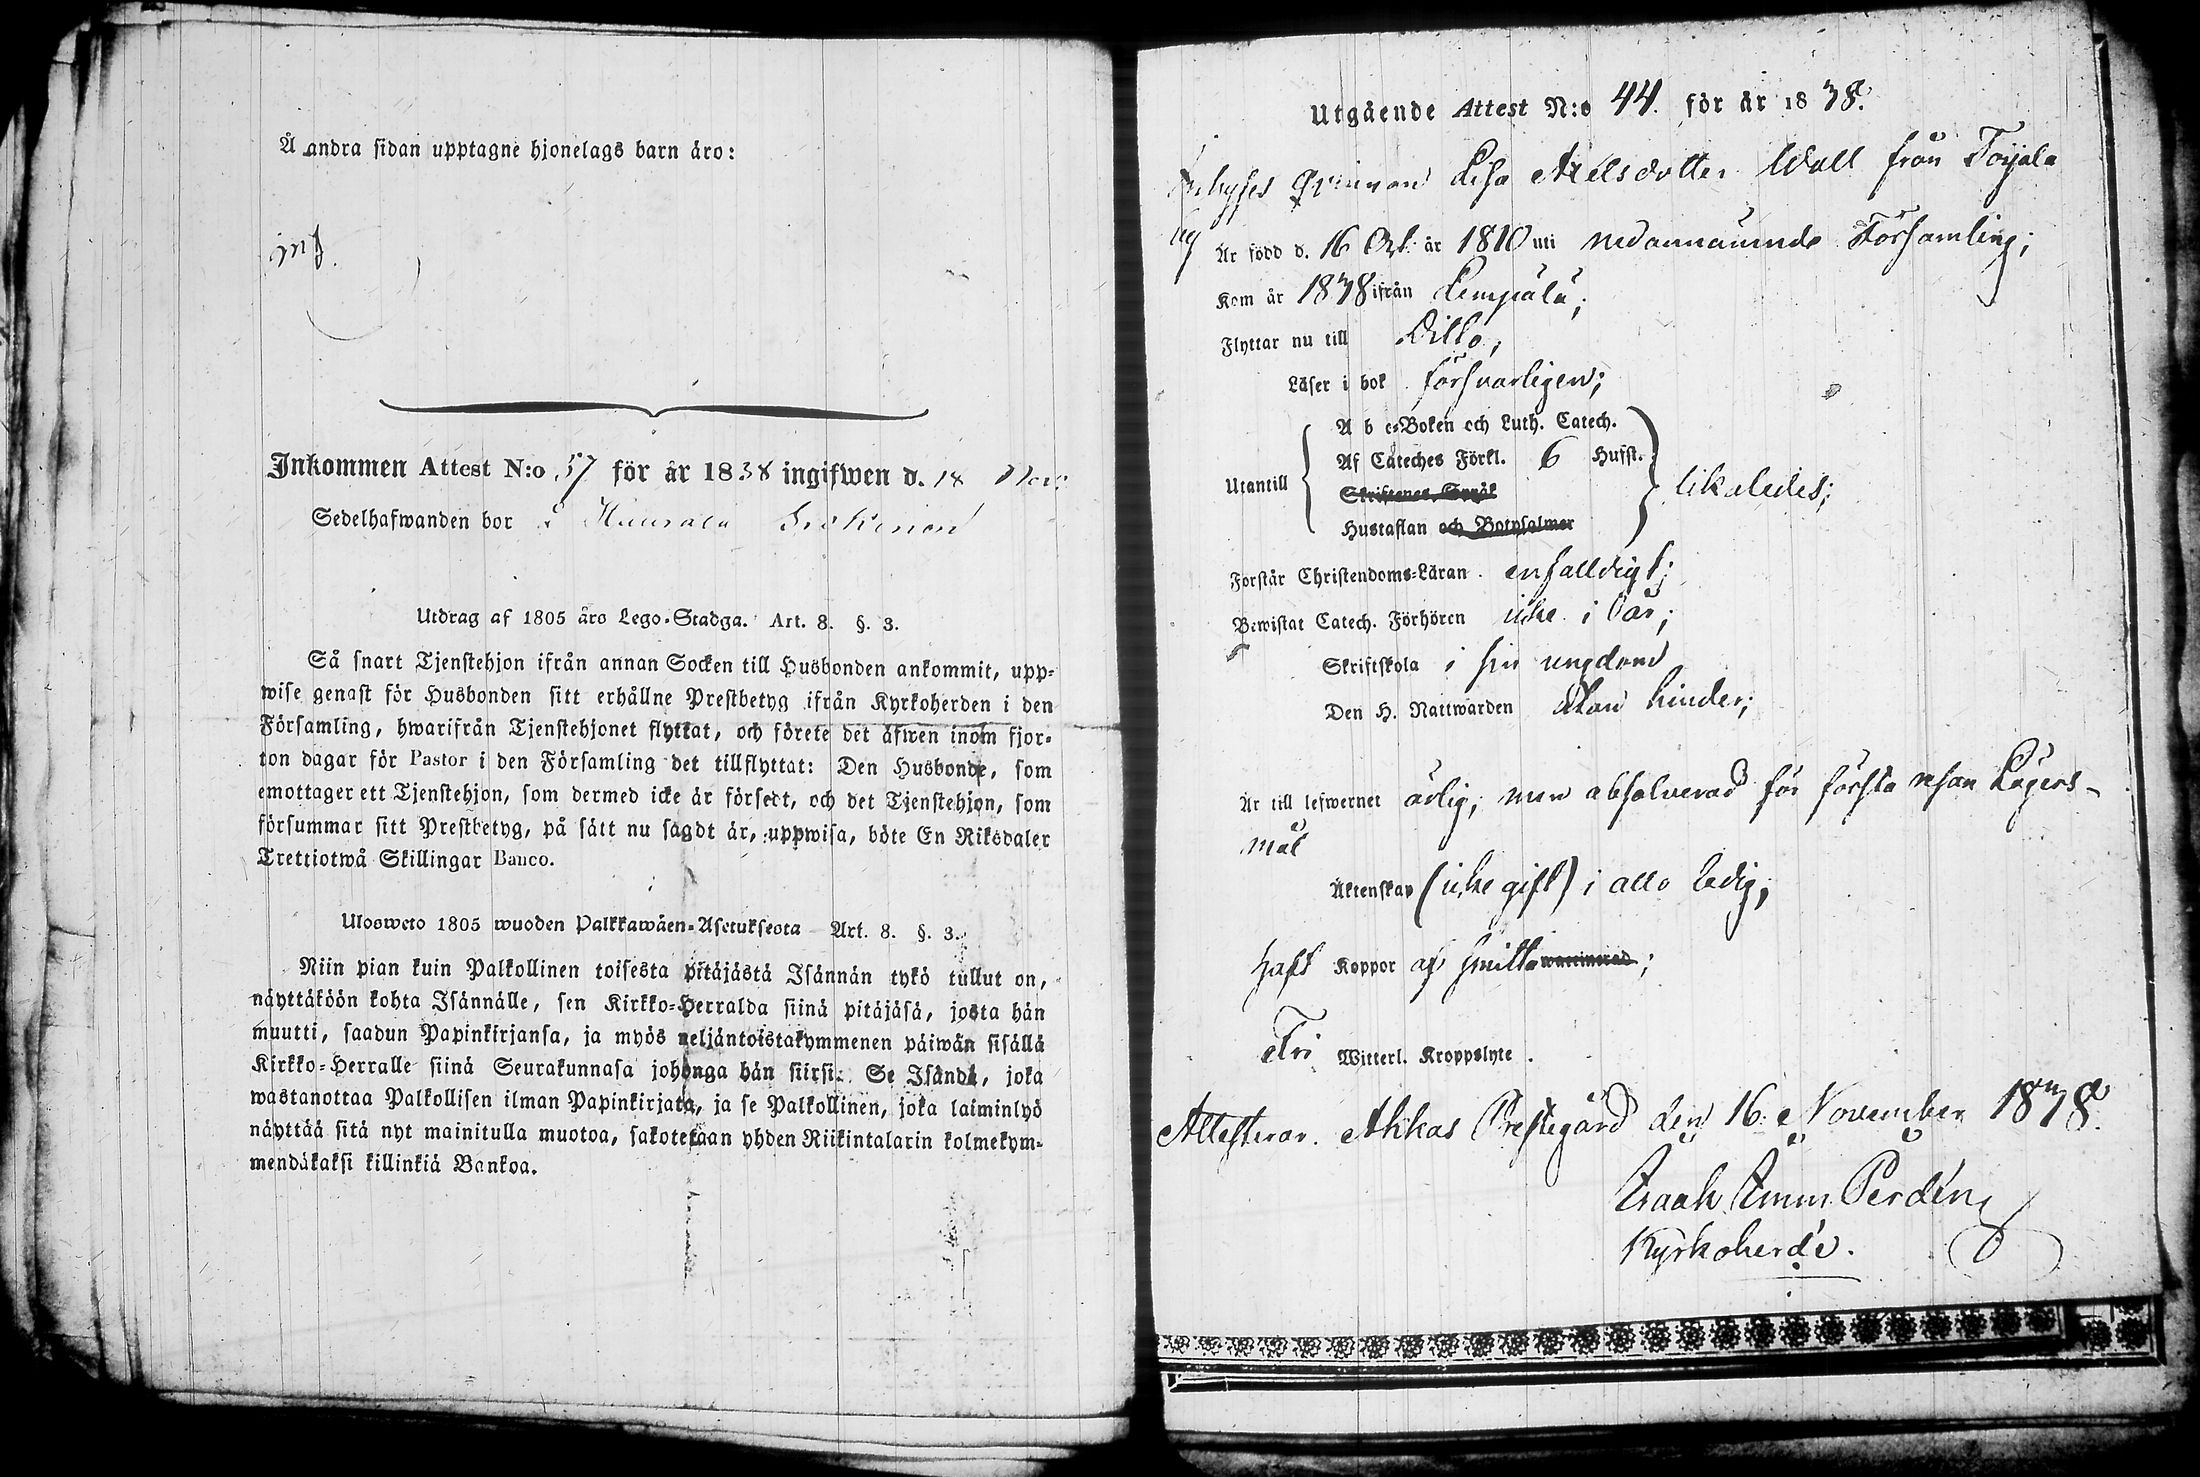 Å andra sidan upptagne hjonelags barn äro:
Inkommen Attest N:o 57 för år 1838 ingifwen d. 18 Nov:
Sedelhafwanden bor i
Utdrag af 1805 års Lego-Stadga. Art. 8. §. 3.
Så snart Tjenstehjon ifrån annan Socken till Husbonden ankommit, upp-
wise genast för Husbonden sitt erhållne Prestbetyg ifrån Kyrkoherden i den
Församling, hwarifrån Tjenstehjonet flyttat, och förete det äfwen inom fjor-
ton dagar för Pastor i den Församling det tillflyttat: Den Husbonde, som
emottager ett Tjenstehjon, som dermed icke är försedt, och det Tjenstehjon, som
försummar sitt Prestbetyg, på sätt nu sagdt är, uppwisa, böte En Riksdaler
Trettiotwå Skillingar Banco.
Ulosweto 1805 wuoden Palkkawäen-Asetuksesta Art. 8. §. 3.
Niin pian kuin Palkollinen toisesta pitäjästä Isännän tykö tullut on,
näyttäköön kohta Isännälle, sen Kirkko-Herralda siinä pitäjäsä, josta hän
muutti, saadun Papinkirjansa, ja myös neljäntoistakymmenen päiwän sisällä
Kirkko-Herralle siinä Seurakunnasa johonga hän siirsi: Se Isändä, joka
wastanottaa Palkollisen ilman Papinkirjata, ja se Palkollinen, joka laiminlyö
näyttää sitä nyt mainitulla muotoa, sakotetaan yhden Riikintalarin kolmekym-
mendäkaksi killinkiä Bankoa.
Utgående Attest N:o 44. för år 1838.
Inhyses Qvinnan Lisa Axelsdotter Wall från Toijala
by
Är född d. 16 Oct. år 1810 uti nedannämnde Församling;
Kom år 1838 ifrån Lempälä;
Flyttar nu till Ditto,
Läser i bok försvarligen;
A b c-Boken och Luth. Catech.
Af Cateches Förkl. 6 Hufst.
Utantill Skriftenes Språk likaledes;
Hustaflan och Botpsalmer
Förstår Christendoms-Läran enfalldigt;
Bewistat Catech. Förhören icke i år;
Skriftskola i sin ungdom
Den H. Nattwarden utan hinder;
Är till lefwernet ärlig, men absolverad för första resan Lägers-
mål
Äktenskap (icke gift) i allo ledig;
Haft Koppor af smitta waccinerad;
Fri Witterl. Kroppslyte.
Attesterar. Akkas Prestegård den 16. November 1838.
Isaak Emm. Perdén
Kyrkoherde.